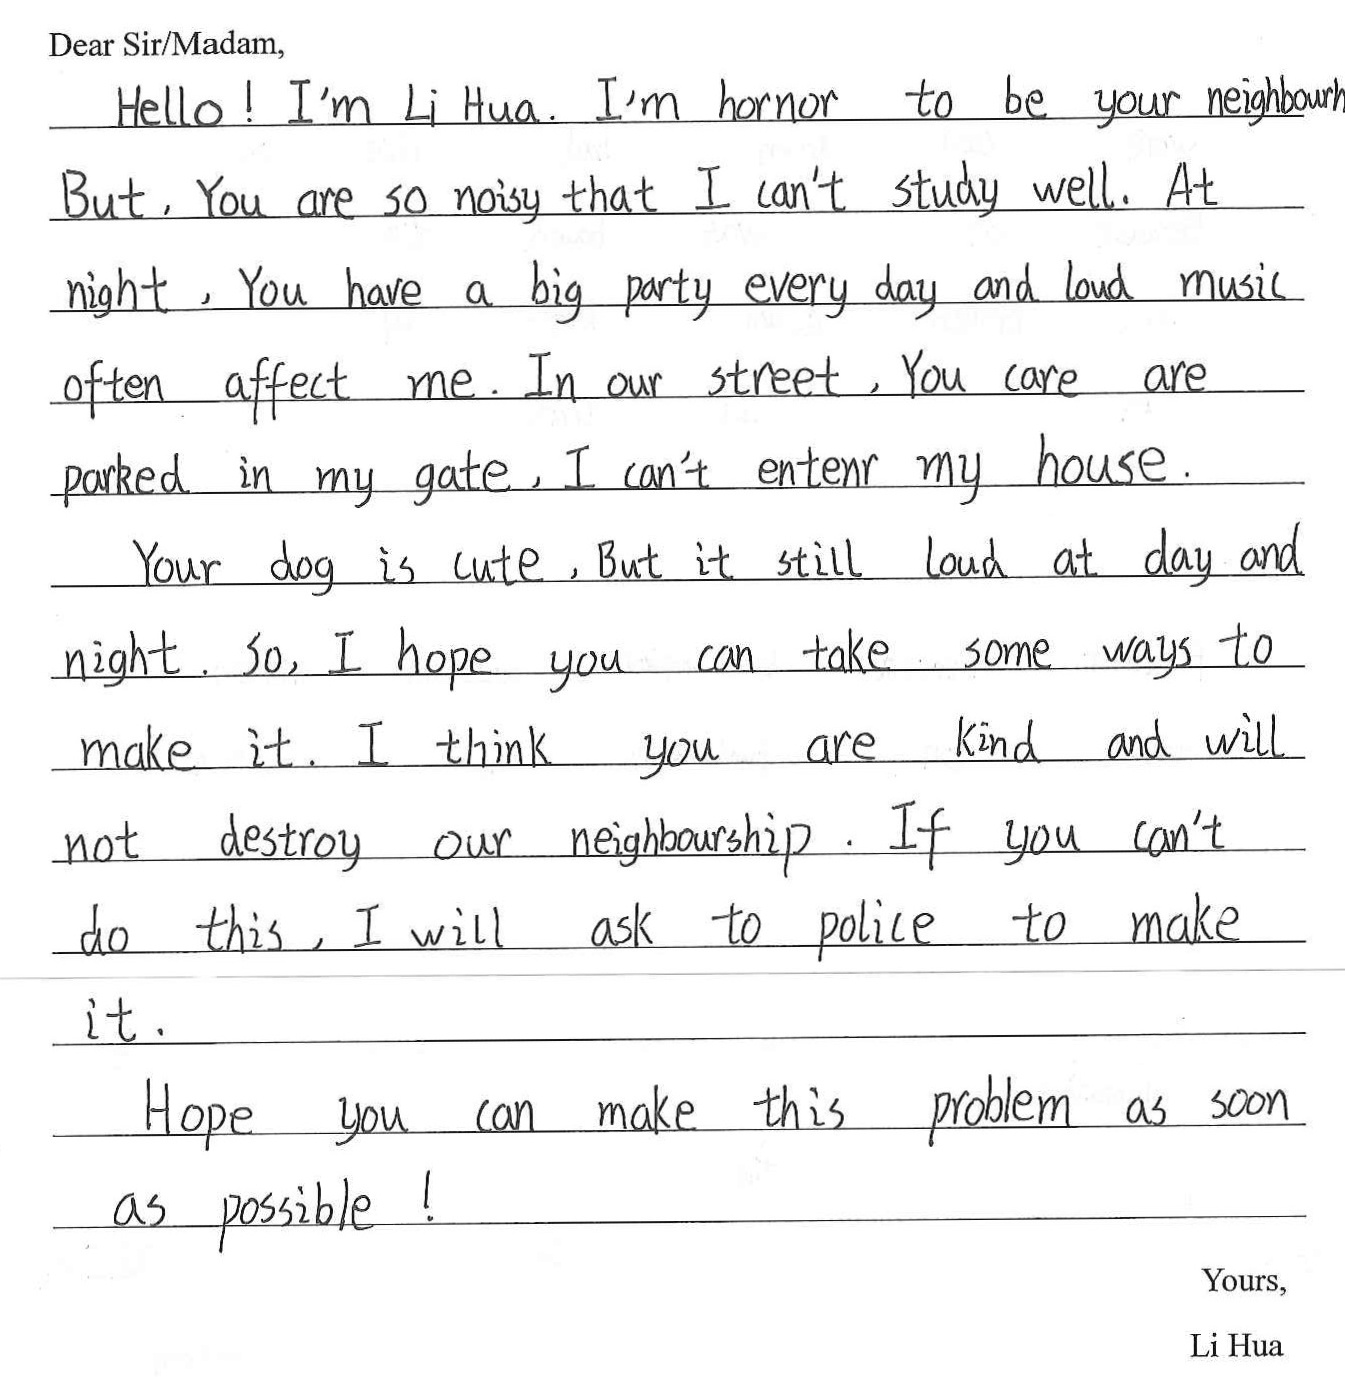 Dear Sir/Madam,
Hello! I'm Li Hua. I'm hornor to be your neighbourh
But, You are so noisy that I can't study well. At
night, You have a big party every day and loud music
often affect me. In our street, You care are
parked in my gate, I can't entenr my house.
Your dog is cute, But it still loud at day and
night. So, I hope you can take some ways to
make it. I think you are kind and will
not destroy our neighbourship. If you can't
do this, I will ask to police to make
it.
Hope you can make this problem as soon
as possible!
Yours,
Li Hua